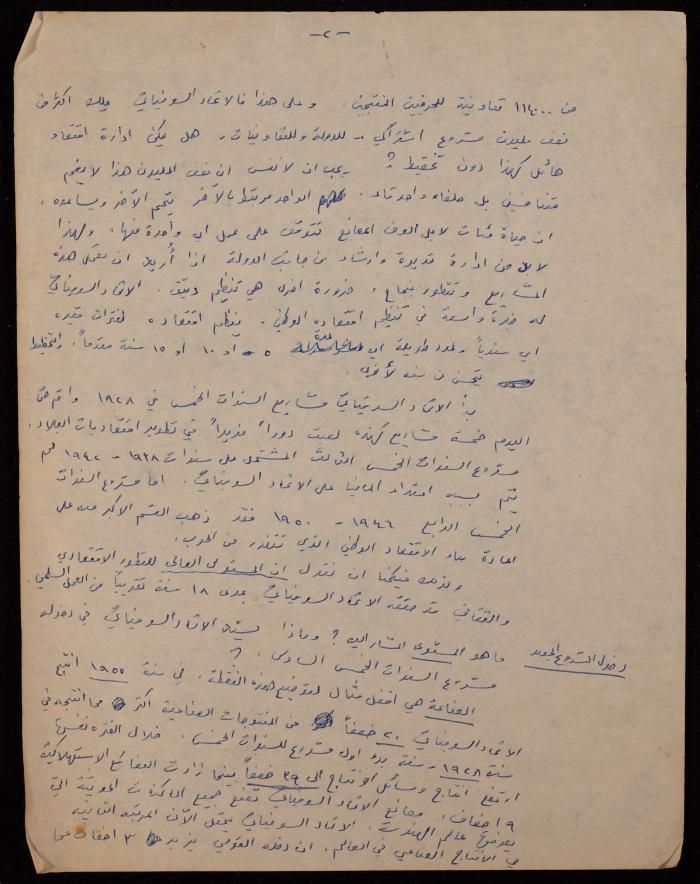 -٢-
من ١١٤٠٠٠ تعاونية للحرفيين المنتجين. وعلى هذا فالاتحاد السوفياتي يملك اكثر من
نصف مليون مشروع اشتراكي - للدولة وللتعاونيات. هل يمكن ادارة اقتصاد
هائل كهذا دون تخطيط؟ يجب ان لا ننسى ان نصف المليون هذا لا يضم
متنافسين بل حلفاء واحدقاء. الواحد مرتبط بالآخر يتمم الآخر ويساعده.
ان حياة مئات لا بل الوف المصانع تتوقف على عمل اي واحدة منها. ولهذا
لا بد من ادارة قديرة وارشاد من جانب الدولة اذا أُريد ان تعمل هذه
المشاريع وتتطور بنجاح، ضرورة اخرى هي تنظيم دقيق. الاتحاد السوفياتي
له خبرة واسعة في تنظيم اقتصاده الوطني. ينظم اقتصاده لفترات قصيرة
اي سنوياً ولمدد طويلة اي لمدة ٥ او ١٠ او ١٥ سنة مقدماً، والتخطيط
يتحسن من سنه لأخرى.
بدأ الاتحاد السوفياتي مشاريع السنوات الخمس في ١٩٢٨ واتم حتى
اليوم خمسة مشاريع كهذه لعبت دوراً فريداً في تطوير اقتصاديات البلاد.
مشروع السنوات الخمس الثالث المشتمل على سنوات ١٩٣٨ - ١٩٤٢ لم
يتم بسبب اعتداء المانيا على الاتحاد السوفياتي. اما مشروع السنوات
الخمس الرابع ١٩٤٦ - ١٩٥٠ فقد ذهب القسم الاكبر منه على
اعادة بناء الاقتصاد الوطني الذي تضرر من الحرب.
وبذلك فيمكننا ان نقول ان المستوى العالي للتطور الاقتصادي
والثقافي قد حققه الاتحاد السوفياتي بمدى ١٨ سنة تقريباً من العمل السلمي.
دخول المشروع الجديد
ما هو المستوى المشار اليه؟ وماذا يستند الاتحاد السوفياتي في دخوله
مشروع السنوات الخمس السادس؟
الصناعة هي افضل مثال لتوضيح هذه النقطة. في سنة ١٩٥٥ انتج
الاتحاد السوفياتي ٢٠ ضعفاً من المنتوجات الصناعية اكثر مما انتجه في
سنة ١٩٢٨ - سنة بدء اول مشروع للسنوات الخمس. خلال الفتره نفسها
ارتفع انتاج وسائل الانتاج الى ٣٩ ضعفاً بينما زادت البضائع الاستهلاكية
٩ اضعاف. مصانع الاتحاد السوفياتي تصنع جميع الماكنات الحديثة التي
يعرفها عالم الهندسة. الاتحاد السوفياتي يحتل الآن المرتبه الثانيه
في الانتاج الصناعي في العالم. ان دخله القومي يزيد ٣ اضعاف عما